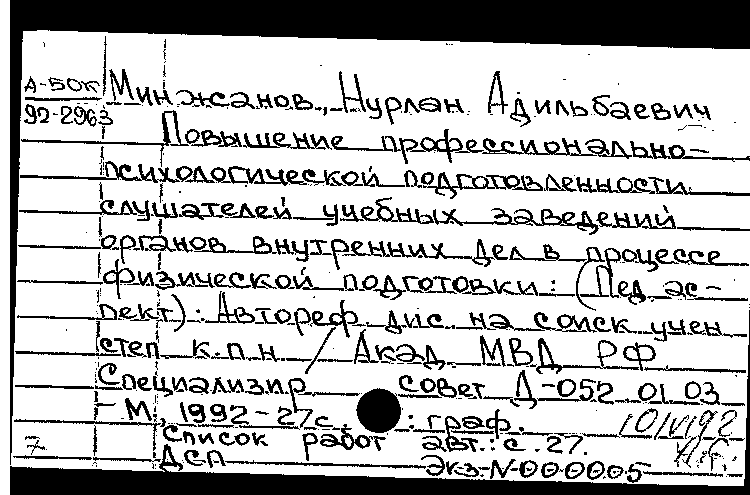 А-50к Минжанов, Нурлан Адильбаевич
92-2963
Повышение профессионально-
психологической подготовленности
слушателей учебных заведений
органов внутренних дел в процессе
физической подготовки: (Пед. ас-
пект): Автореф. дис. на соиск учен
степ к.п.н. / Акад. МВД РФ.
Специализир. совет Д-052 01 03
- М., 1992 - 27с. : граф.
10/VI 92
Список работ авт.: с. 27.
7 ДСП Экз-N-000005